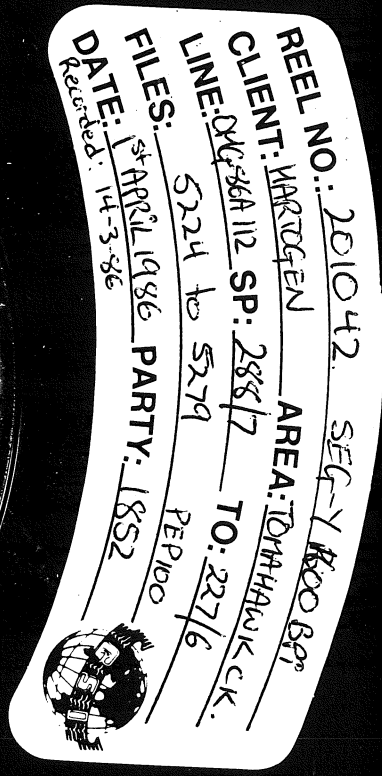 REEL NO.: 201042. SEG-Y 1600 BPI
CLIENT: HARTOGEN AREA: TOMAHAWK CK.
LINE: OMG-86A 112 SP: 288/7 TO: 227/6
FILES: 5224 to 5279 PEP100
DATE: 1st APRIL 1986 PARTY: 1852
Recorded: 14-3-86